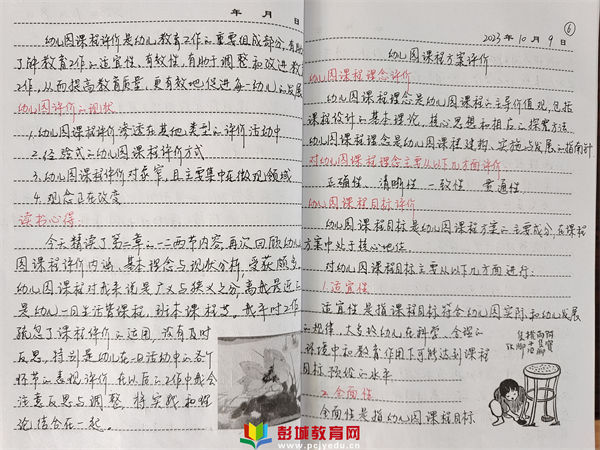 年 月 日
幼儿园课程评价是幼儿教育工作的重要组成部分,有助
了解教育工作的适宜性、有效性,有助于调整和改进教
工作,从而提高教育质量,更有效地促进每一幼儿的发展
幼儿园评价的现状
1.幼儿园课程评价渗透在其他类型的评价活动中
2.经验式的幼儿园课程评价方式
3.幼儿园课程评价对象窄,且主要集中在微观领域
4.观念正在改变
读书心得:
今天精读了第二章的一二两节内容,再次回顾幼儿
园课程评价内涵、基本理念与现状分析,受获颇多。
幼儿园课程对我来说是广义与狭义之分,离我最近的
是幼儿一日生活皆课程,班本课程等。我平时工作
疏忽了课程评价的运用,没有及时
反思。特别是幼儿在一日活动中的各个
环节的表现评价,在以后的工作中我会
注意反思与调整,将实践和理
论结合在一起。
6
2023年10月9日
幼儿园课程方案评价
幼儿园课程理念评价
幼儿园课程理念是幼儿园课程的主导价值观,包括
课程设计的基本理论,核心思想和相应的探索方法。
幼儿园课程理念是幼儿园课程建构、实施与发展的指南针
对幼儿园课程理念主要从以下几方面评价
正确性 清晰性 一致性 贯通性
幼儿园课程目标评价
幼儿园课程目标是幼儿园课程方案的主要成分,在课程
方案中处于核心地位。
对幼儿园课程目标主要从以下几方面进行:
1.适宜性
适宜性是指课程目标符合幼儿园实际和幼儿发展
的规律,大多数幼儿在科学、合理的
环境中和教育作用下可能达到课程
目标预设的水平
2.全面性
全面性是指幼儿园课程目标
彭城教育网
www.pcjyw.com